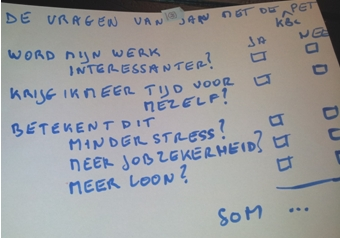 DE VRAGEN VAN JAN MET DE PET
KBC
JA NEE
WORD MIJN WERK
INTERESSANTER?
KRIJG IK MEER TIJD VOOR
MEZELF?
BETEKENT DIT
MINDER STRESS?
MEER JOBZEKERHEID?
MEER LOON?
SOM ...